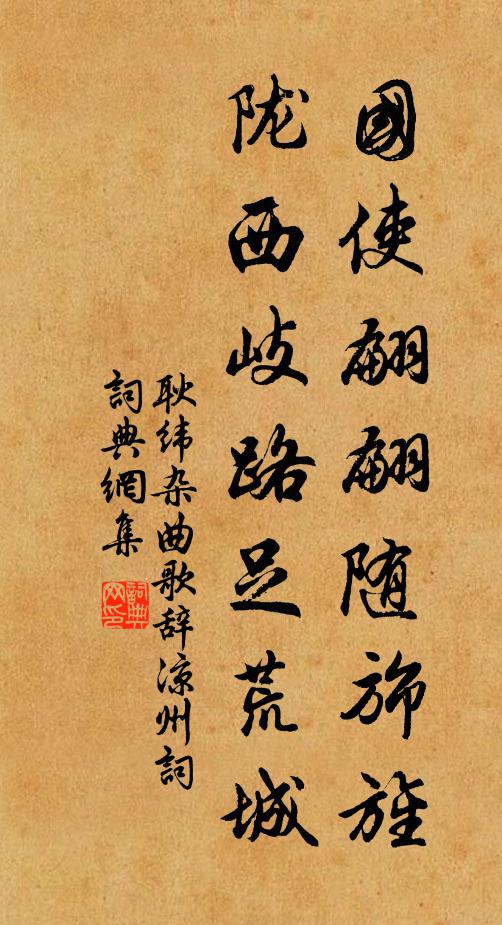 國使翩翩随旆旌
陇西岐路足荒城
耿纬杂曲歌辞凉州詞
詞典網集
詞典网印